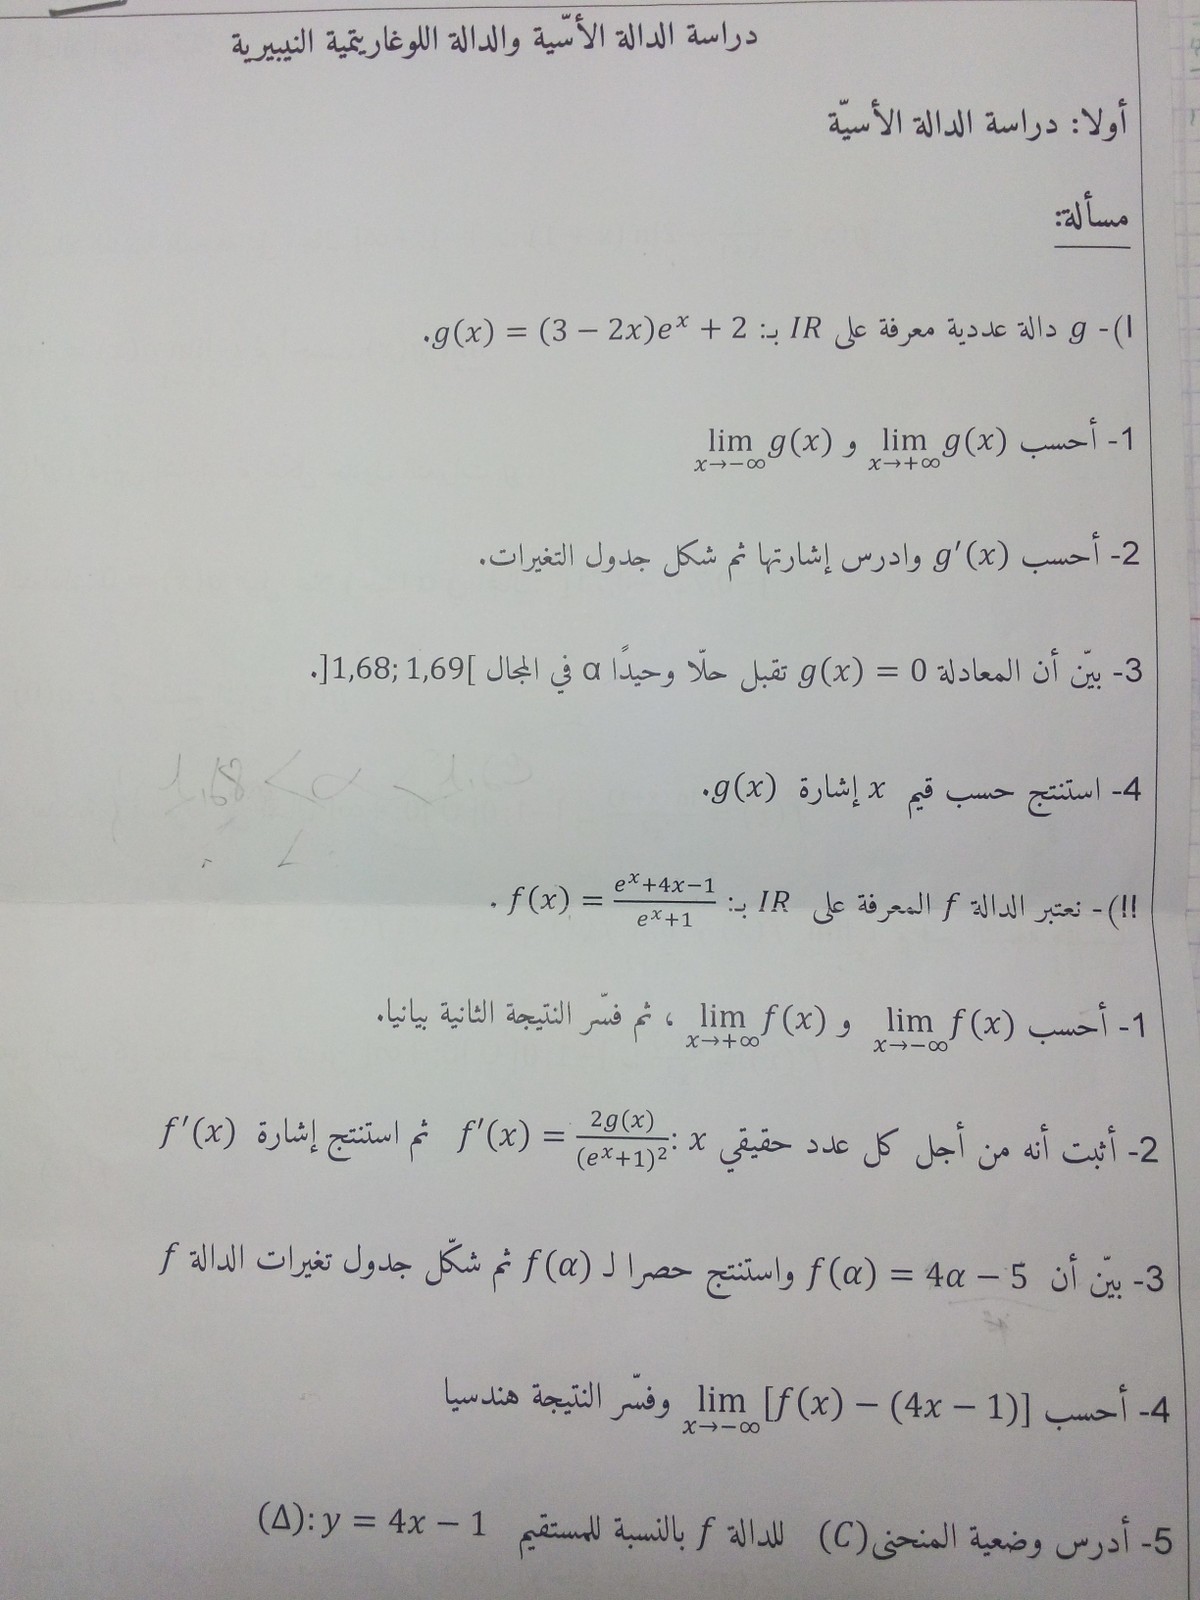 دراسة الدالة الأسّية والدالة اللوغاريتمية النيبيرية
أولا: دراسة الدالة الأسيّة
مسألة:
I)- g دالة عددية معرفة على IR بـ: g(x) = (3 − 2x)eˣ + 2.
1- أحسب lim_{x→+∞} g(x) و lim_{x→−∞} g(x)
2- أحسب g′(x) وادرس إشارتها ثم شكل جدول التغيرات.
3- بيّن أن المعادلة g(x) = 0 تقبل حلّا وحيدًا α في المجال ]1,68; 1,69[.
4- استنتج حسب قيم x إشارة g(x).
II)- نعتبر الدالة f المعرفة على IR بـ: f(x) = (eˣ+4x−1)/(eˣ+1) .
1- أحسب lim_{x→−∞} f(x) و lim_{x→+∞} f(x) ، ثم فسّر النتيجة الثانية بيانيا.
2- أثبت أنه من أجل كل عدد حقيقي x : f′(x) = 2g(x)/(eˣ+1)² ثم استنتج إشارة f′(x)
3- بيّن أن f(α) = 4α − 5 واستنتج حصرا لـ f(α) ثم شكّل جدول تغيرات الدالة f
4- أحسب lim_{x→−∞} [f(x) − (4x − 1)] وفسّر النتيجة هندسيا
5- أدرس وضعية المنحنى (C) للدالة f بالنسبة للمستقيم (Δ): y = 4x − 1